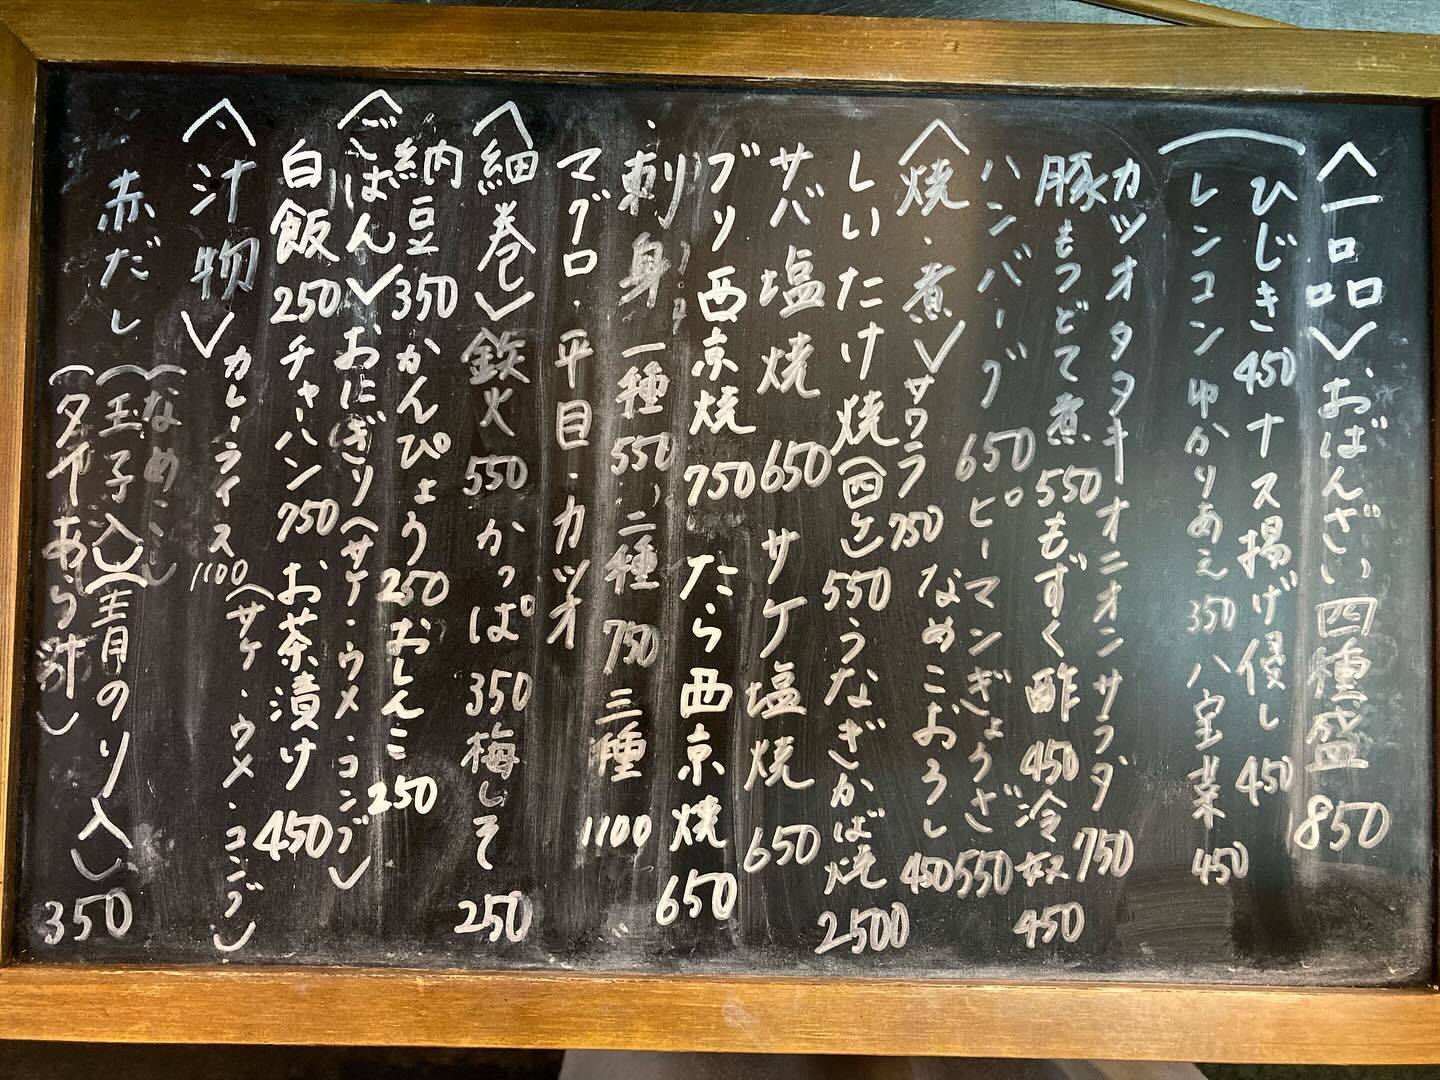 〈一品〉おばんざい四種盛 850
ひじき 450 ナス揚げ浸し 450
レンコンゆかりあえ 350 八宝菜 450
カツオタタキオニオンサラダ 750
豚もつどて煮 550 もずく酢 450 冷奴 450
ハンバーグ 650 ピーマンぎょうざ 550
〈焼・煮〉サワラ 750 なめこおろし 450
しいたけ焼(四ヶ) 550 うなぎかば焼 2500
サバ塩焼 650 サケ塩焼 650
ブリ西京焼 750 たら西京焼 650
刺身 一種 550 二種 750 三種 1100
マグロ・平目・カツオ
〈細巻〉鉄火 550 かっぱ 350 梅しそ 250
納豆 350 かんぴょう 250 おしんこ 250
〈ごはん〉おにぎり(サケ・ウメ・コンブ)
白飯 250 チャーハン 750 お茶漬け 450
(サケ・ウメ・コンブ)
カレーライス 1100
〈汁物〉
赤だし (なめこ)
(玉子入)(青のり入)
(タイあら汁) 350